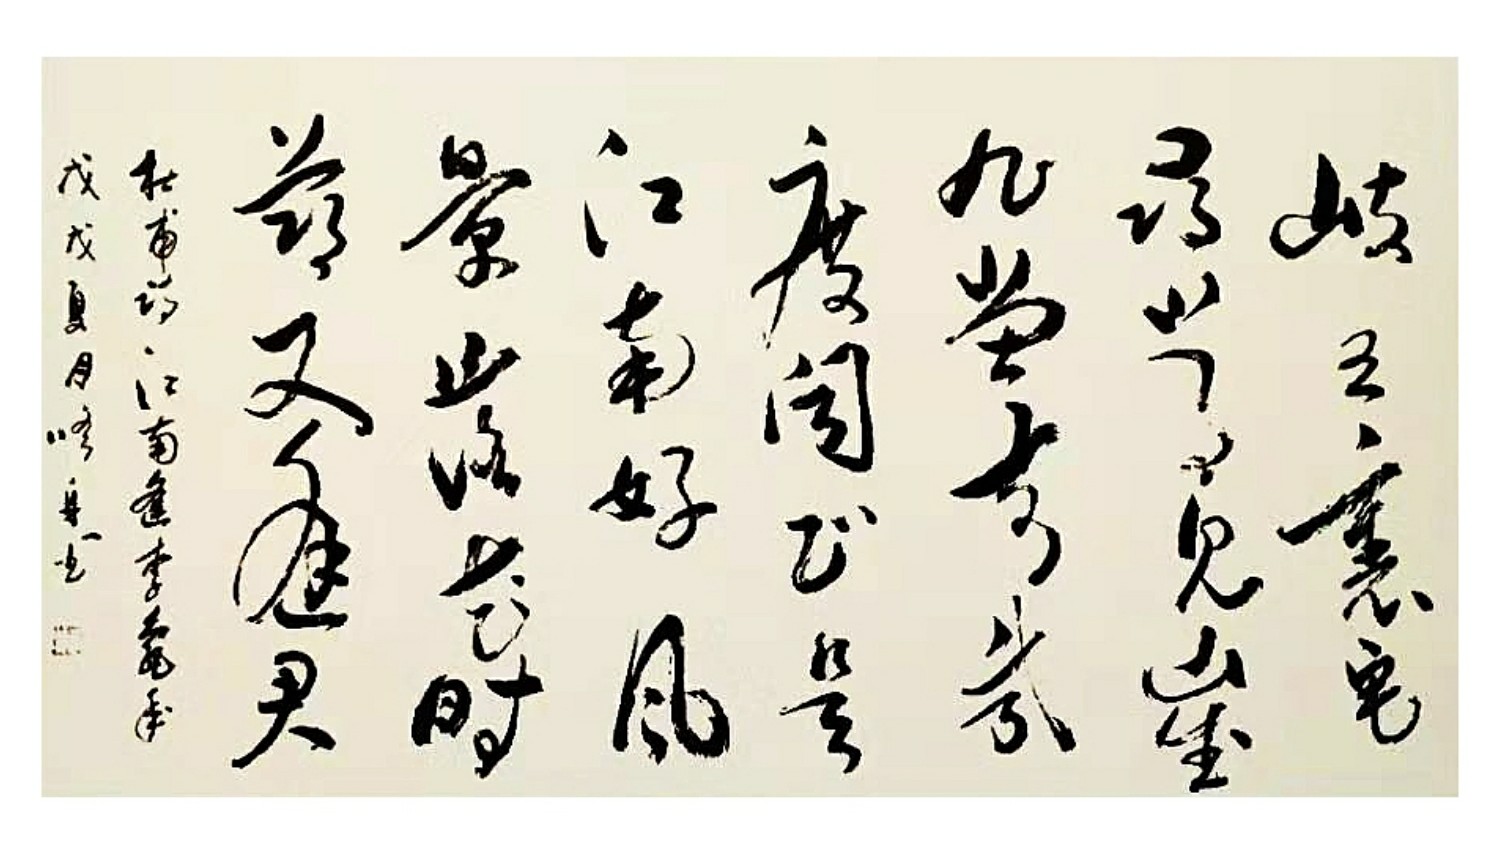 岐王裏宅
尋常見崔
九堂前幾
度聞正是
江南好風
景落花時
節又逢君
杜甫詩江南逢李龜年
戊戌夏月書